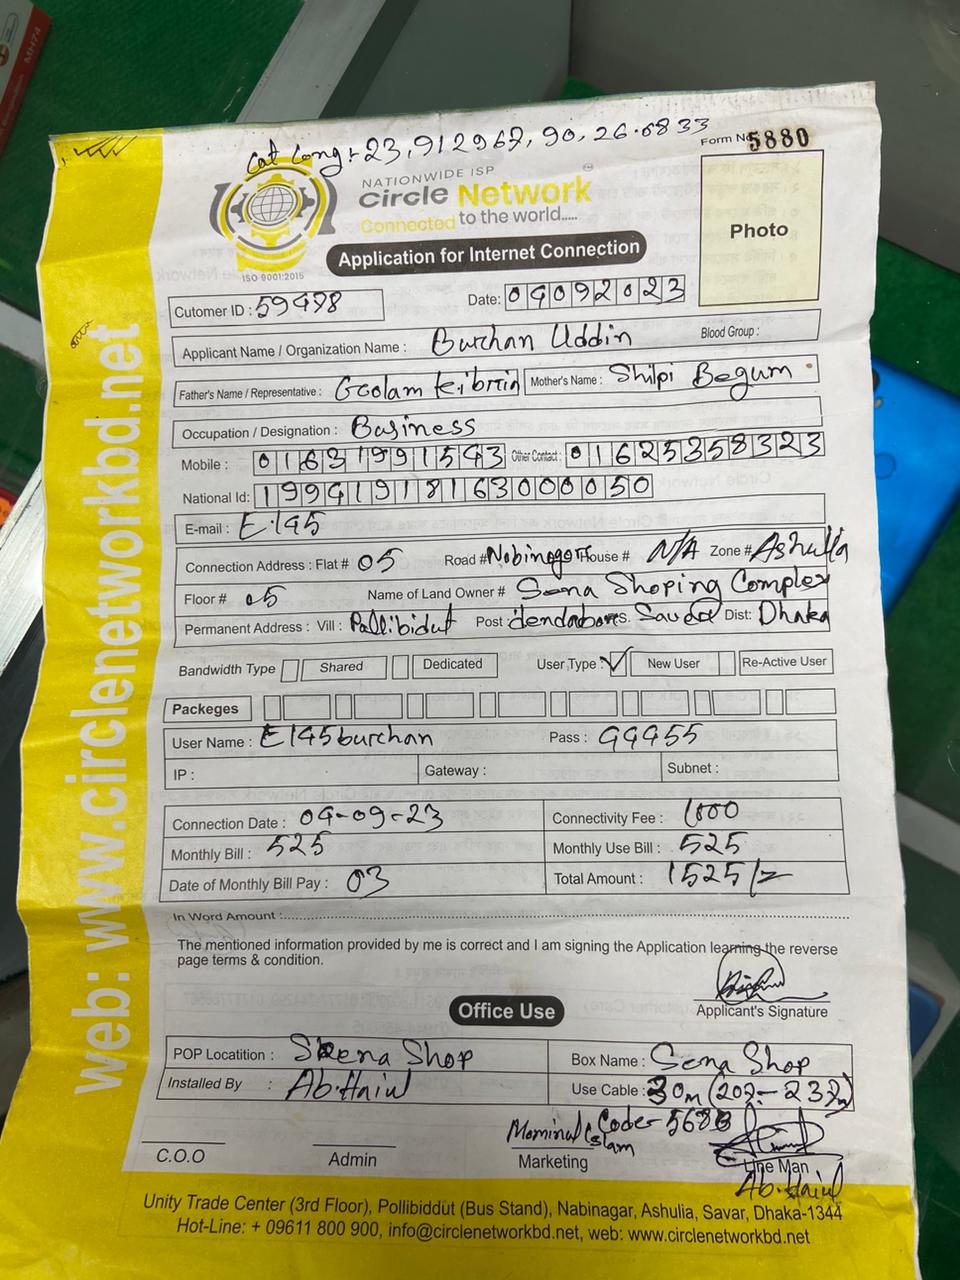 Cat Long:- 23,912967, 90,26.0833
Form No 5880
NATIONWIDE ISP
Circle Network
Connected to the world.....
ISO 9001:2015
Photo
Application for Internet Connection
Cutomer ID : 59478 Date: 04092023
Applicant Name / Organization Name : Burhan Uddin Blood Group :
Father's Name / Representative : Goolam Kibria Mother's Name : Shilpi Begum
Occupation / Designation : Business
Mobile : 01631991543 Other Contact : 01625358323
National Id: 19941918163000050
E-mail : E.145
Connection Address : Flat # 05 Road # Nobinagor House # N/A Zone # Ashulla
Floor # 05 Name of Land Owner # Sena Shoping Complex
Permanent Address : Vill : Pallibidut Post : dendabor S. Savar Dist: Dhaka
Bandwidth Type Shared Dedicated User Type : ✓ New User Re-Active User
Packeges
User Name : E145burhan Pass : 99955
IP : Gateway : Subnet :
Connection Date : 04-09-23 Connectivity Fee : 1000
Monthly Bill : 525 Monthly Use Bill : 525
Date of Monthly Bill Pay : 03 Total Amount : 1525/=
In Word Amount :
The mentioned information provided by me is correct and I am signing the Application learning the reverse
page terms & condition.
Applicant's Signature
Office Use
POP Locatition : Sena Shop Box Name : Sena Shop
Installed By : Ab.Haiul Use Cable : 30m (202 - 232m)
Mominul Islam Code- 5683
C.O.O Admin Marketing Line Man
Ab.Haiul
Unity Trade Center (3rd Floor), Pollibiddut (Bus Stand), Nabinagar, Ashulia, Savar, Dhaka-1344
Hot-Line: + 09611 800 900, info@circlenetworkbd.net, web: www.circlenetworkbd.net
web: www.circlenetworkbd.net